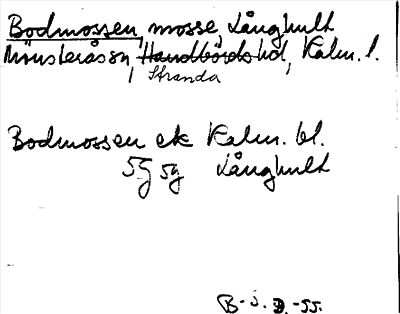 Bodmossen, mosse, Långhult
Mönsterås sn, Handbörds hd, Kalm. l.
Stranda
Bodmossen ek Kalm. bl.
5G 5g Långhult
B. J. D. -55.